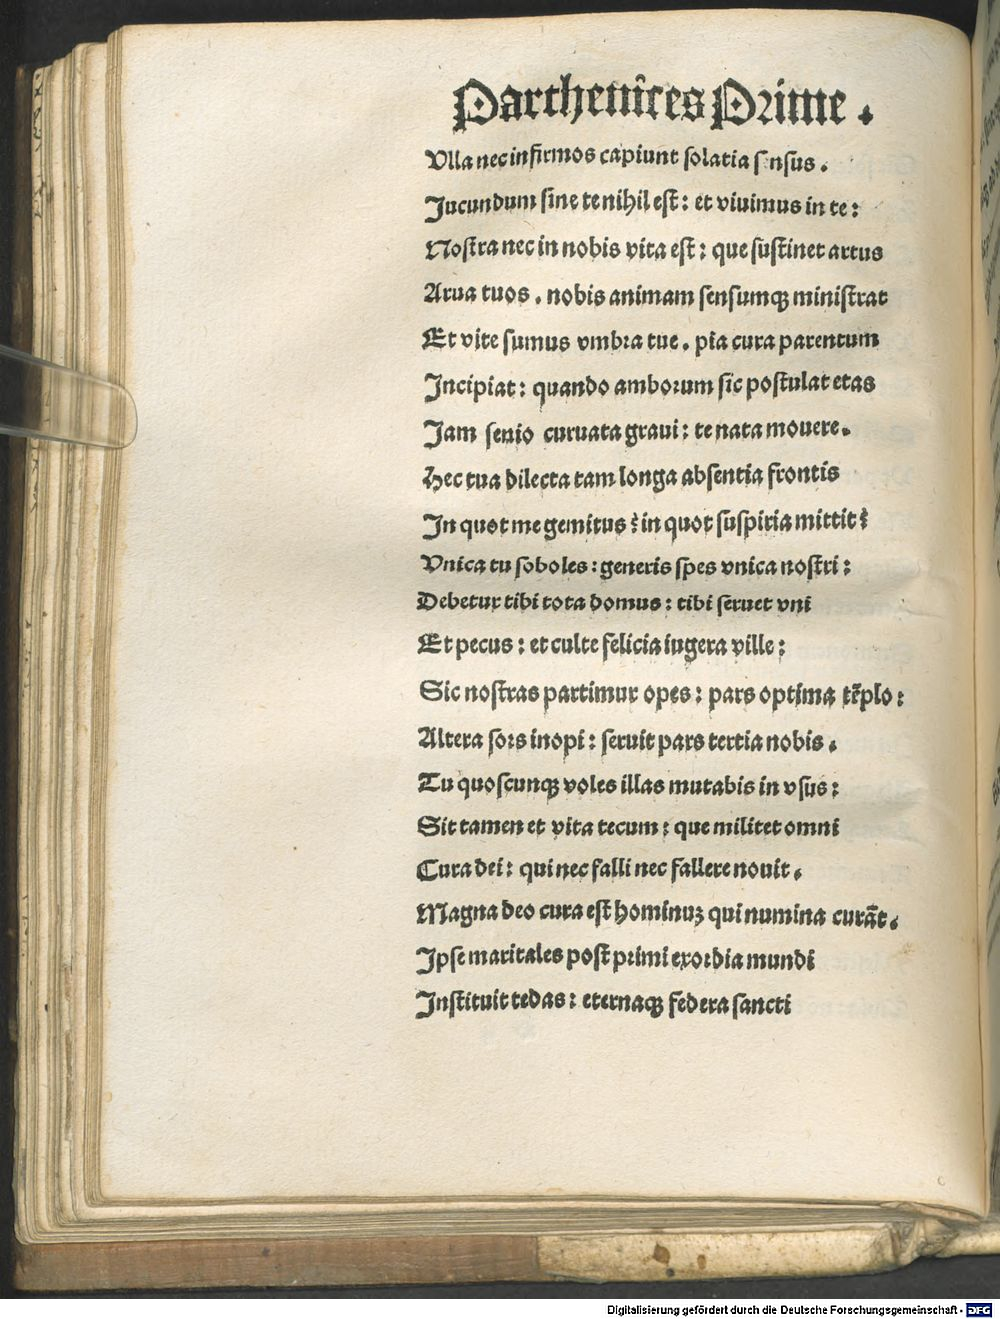 Parthenîces Prime.
Vlla nec infirmos capiunt solatia sensus.
Jucundum sine te nihil est: et viuimus in te:
Nostra nec in nobis vita est: que sustinet artus
Arua tuos. nobis animam sensumqꝫ ministrat
Et vite sumus vmbra tue. pia cura parentum
Incipiat: quando amborum sic postulat etas
Jam senio curuata graui: te nata mouere.
Hec tua dilecta tam longa absentia frontis
In quot me gemitus? in quot suspiria mittit?
Vnica tu soboles: generis spes vnica nostri:
Debetur tibi tota domus: tibi seruet vni
Et pecus: et culte felicia iugera ville:
Sic nostras partimur opes: pars optima tẽplo:
Altera sors inopi: seruit pars tertia nobis.
Tu quoscunqꝫ voles illas mutabis in vsus:
Sit tamen et vita tecum: que militet omni
Cura dei: qui nec falli nec fallere nouit.
Magna deo cura est hominuꝫ qui numina curãt.
Ipse maritales post primi exordia mundi
Instituit tedas: eternaqꝫ federa sancti
Digitalisierung gefördert durch die Deutsche Forschungsgemeinschaft - DFG